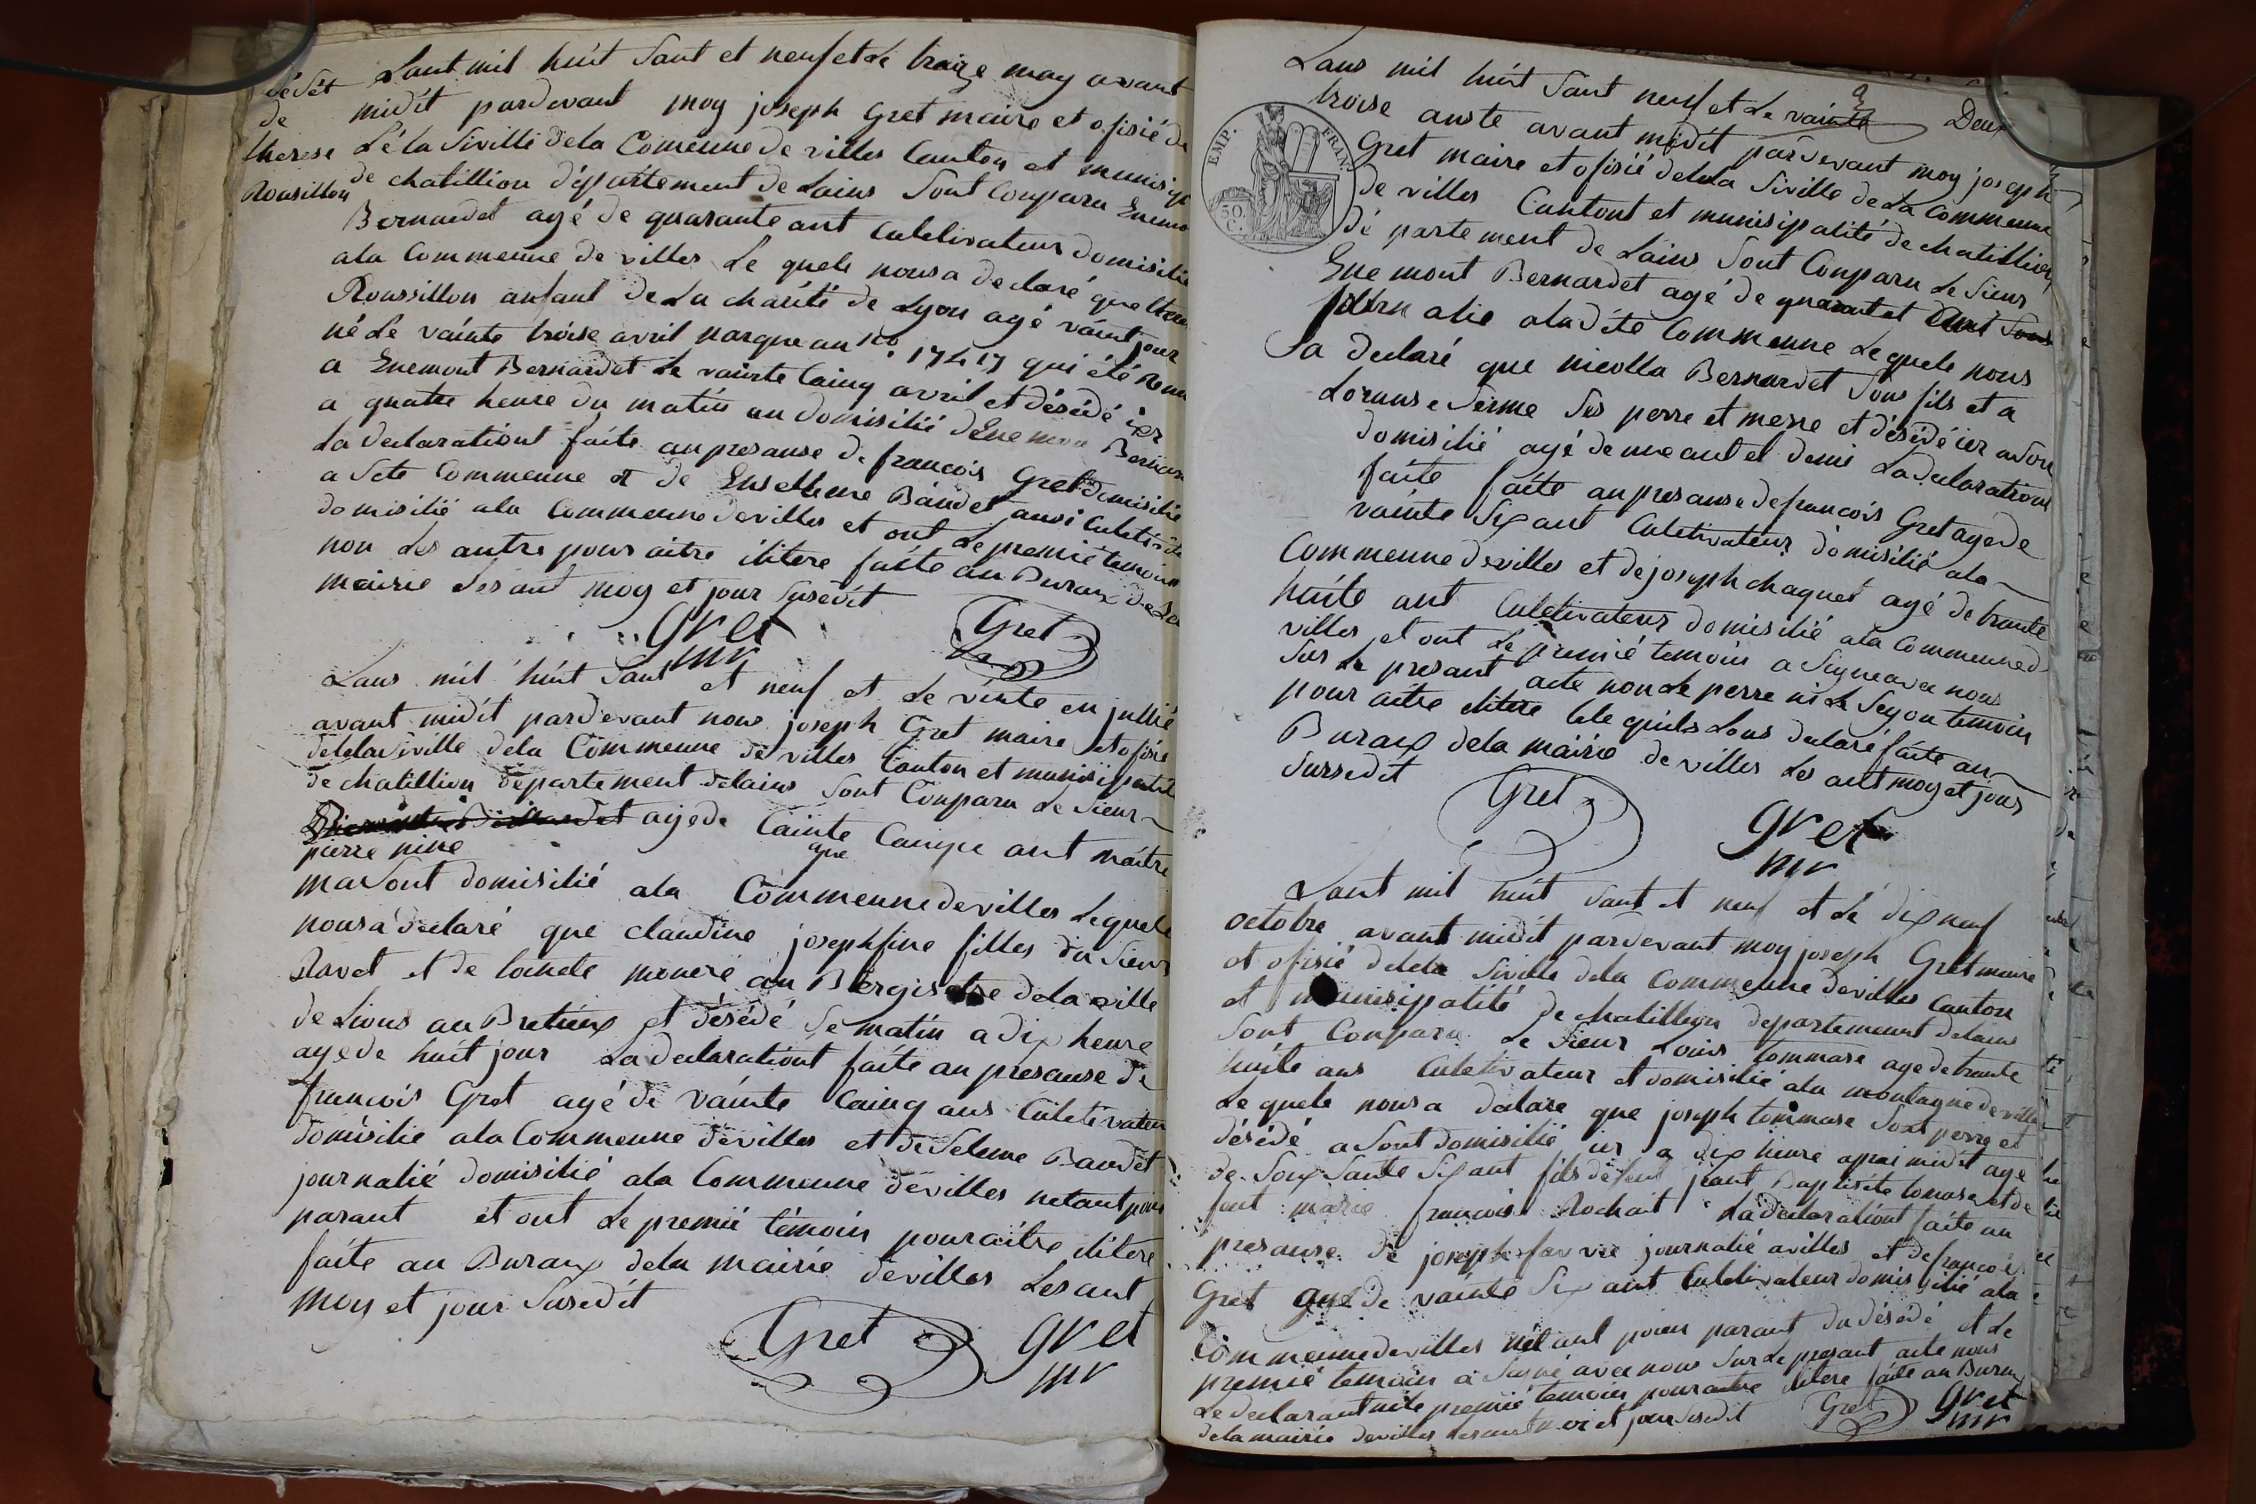 dését
de
therese
Rousillon
Lant mil huit Sant et neuf et Le traize may avant
midit pardevant moy joseph Gret maire et ofisié de
Lé la Siville dela Comeune de villes Canton et munisip
de chatillion département de Lains Sont Conparu Enemo
Bernardet agé de quarante ant Culetivateur domisilié
ala Commeune de villes Le quele nousa declaré que
Roussillon anfant de La charité de Lyon agé vaint jour
né Le vainte troise avril marque au no. 17417 qui été
a Enemont Bernardet Le vainte Cainq avril et désédé ier
a quatre heure du matin au domisilié dEnemon Bernar
La declarationt faite aupresanse de francois Gret domisilié
a Sete Commeune et de Enseleme Baudet ausi Culetiv
domisilié ala Commeune devilles et ont Le premié temoin
non Les autre pour aitre ilitere faite au Buraux de La
mairie Les ant moy et jour Susedit
Gret
mr
Gret
Lans mil huit Sant et neuf et Le vinte en jullié
avant midit pardevant nous joseph Gret maire et ofisié
delelasiville dela Commeune de villes Canton et munisipalité
de chatillion département delains Sont Conparu Le Sieur
agede Cainte Cainque ant maitre
pierre nine
masont domisilié ala Commeunedevilles Lequele
nousa declaré que claudine josephfine filles du Sieur
Ravet et de au dela ville
de Lions au Bretieux et désédé Se matin a dix heure
agede huit jour La declarationt faite au presanse de
francois Gret agé de vainte Cainq ans Culetivateur
domisilié ala Commeune devilles et de Seleme Baudet
journalié domisilié ala Commeune devilles netant poin
parant et ont Le premié témoin pouraitre ilitere
faite au Buraux dela mairie devilles Les ant
moy et jour Susedit
Gret
Gret
mr
Lans mil huit Sant neuf et Le vainte Deux
troise auste avant midit pardevant moy joseph
Gret maire et ofisié delela Siville de La Commeune
de villes Cantont et munisipalité de chatillion
dé partement de Lains Sont Conparu Le Sieur
Enemont Bernardet agé de quarant et
alie aladite Commeune Lequele nous
a declaré que nicolla Bernardet Sons fils et a
Loranse Serme Ses perre et merre et désédé ier a Son
domisilié agé de une ant et demi La declarations
faite faite au presanse defrancois Gret agede
vainte Six ant Culetivateur domisilié ala
Commeune devilles et de joseph chaquet agé de trante
huite ant Culetivateur domisilié ala Commeuned
villes et ont Le premié temoin a Signeavec nous
Sur Le presant acte non Le perre ni Le Segon temoin
pour aitre ilitere Ce le quils Lons declaré faite au
Buraux dela mairie de villes Les ant moy et jour
Sursedit
Gret
Gret
mr
EMP. FRAN.
50.
C.
Lant mil huit Sant et neuf et Le dix neuf
octobre avant midit pardevant moy joseph Gret maire
et ofisié delela Siville dela Commeune devilles Canton
et munisipalité de chatillion departement delains
Sont Conparu Le Sieur Louis tommase agedetrante
huite ans Culetivateur et domisilié ala montagne deville
Le quele nousa declare que joseph tommase Sont perre et
désédé a Sont domisilié ier a dix heure apras midit age
de Soixsante Six ant fils defeut jeant Baptiste tomase et de
feut marie francoise Rochait La declarationt faite au
presanse de joseph favvre journalié avilles et defrancois
Gret agé de vainte Six ant Culetivateur domisilié ala
Commeunedevilles netant poien parant du désédé et Le
premié temoin a Signé avec nous Sur Le presant acte nous
Le declarant ni Le premié temoin pour aitre ilitere faite au Buraux
dela mairie devilles Lesant moi et jour Susedit
Gret
Gret
mr